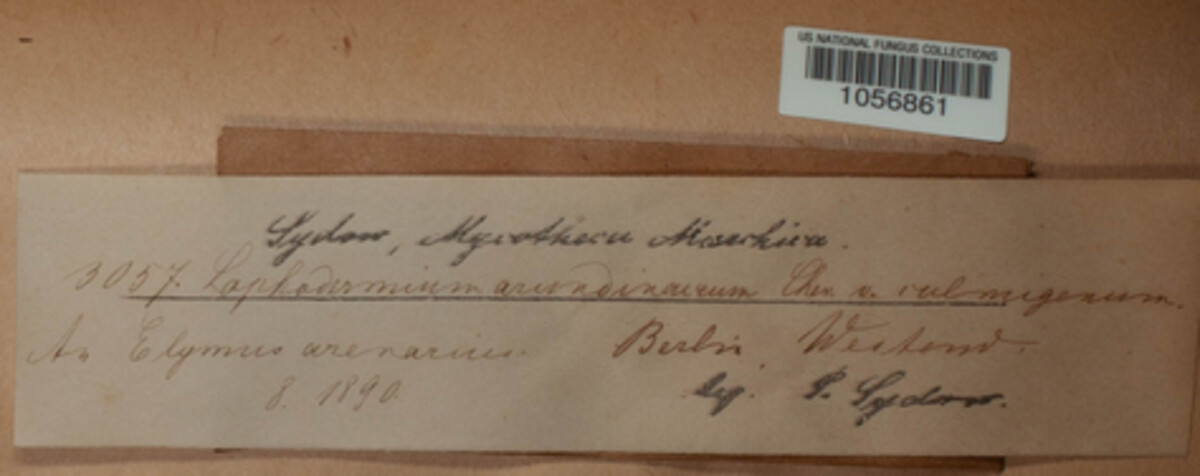 US NATIONAL FUNGUS COLLECTIONS
1056861
Sydow, Mycotheca Marchica.
3057. Lophodermium arundinaceum Chev. v. culmigenum.
An Elymus arenarius. Berlin, Westend.
8. 1890. leg. P. Sydow.